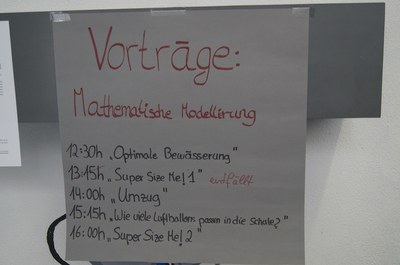 Vorträge:
Mathematische Modellirung
12:30h „Optimale Bewässerung"
13:15h „Super Size Me! 1" entfällt
14:00h „Umzug"
15:15h „Wie viele Luftballons passen in die Schule?"
16:00h „Super Size Me! 2"